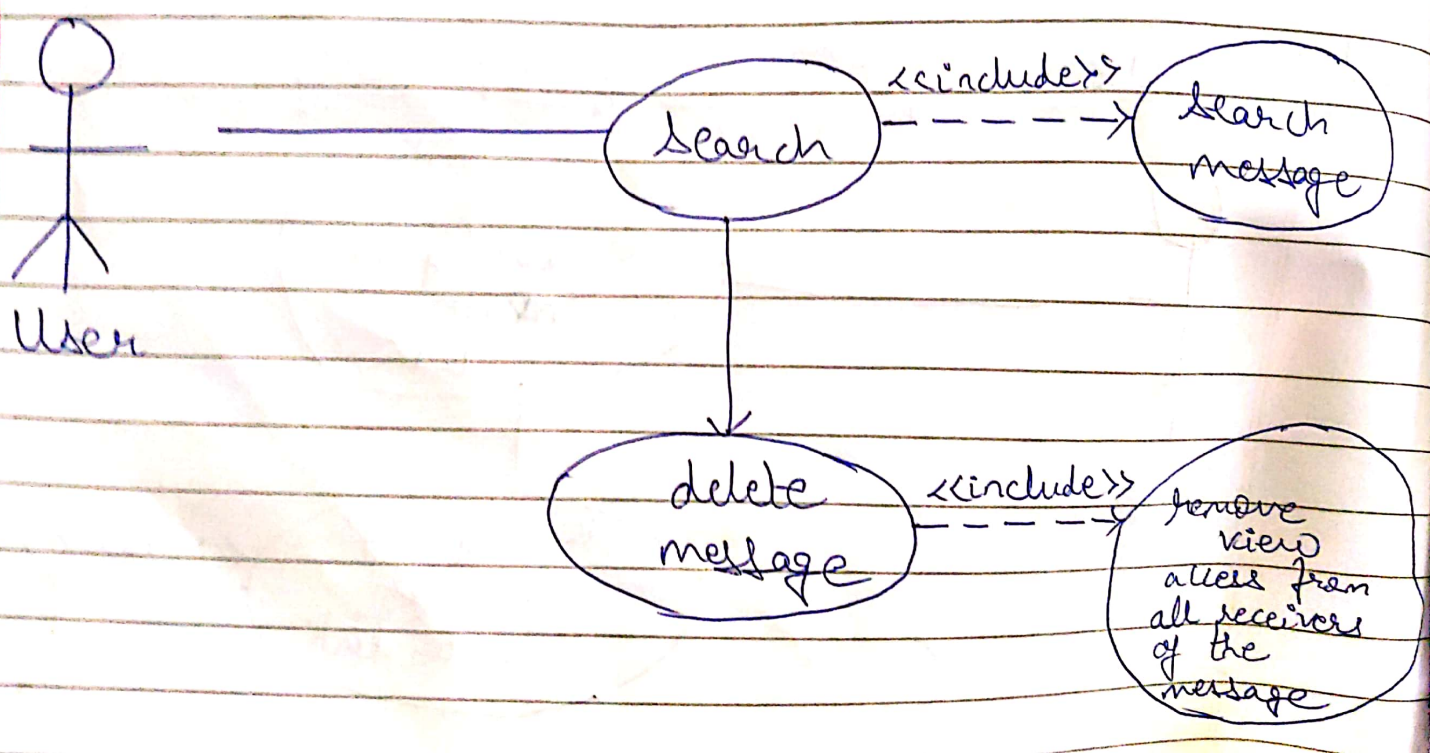 <<include>>
search
search
message
User
delete
message
<<include>>
remove
view
access from
all receivers
of the
message